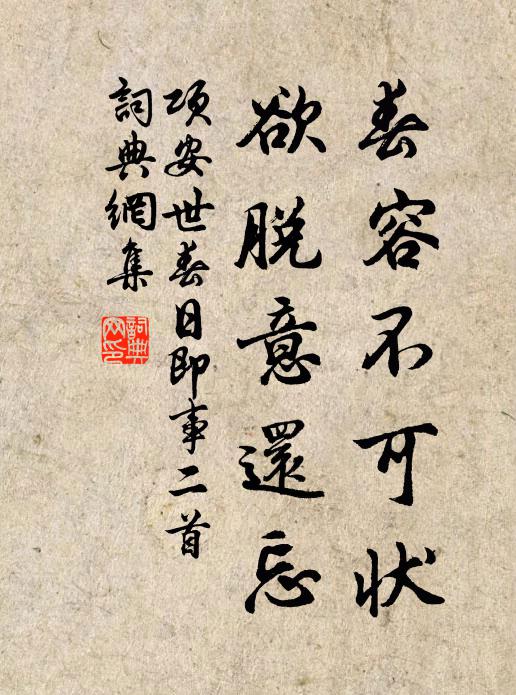 春容不可状
欲脱意還忘
項安世春日即事二首
詞典網集
詞典网印